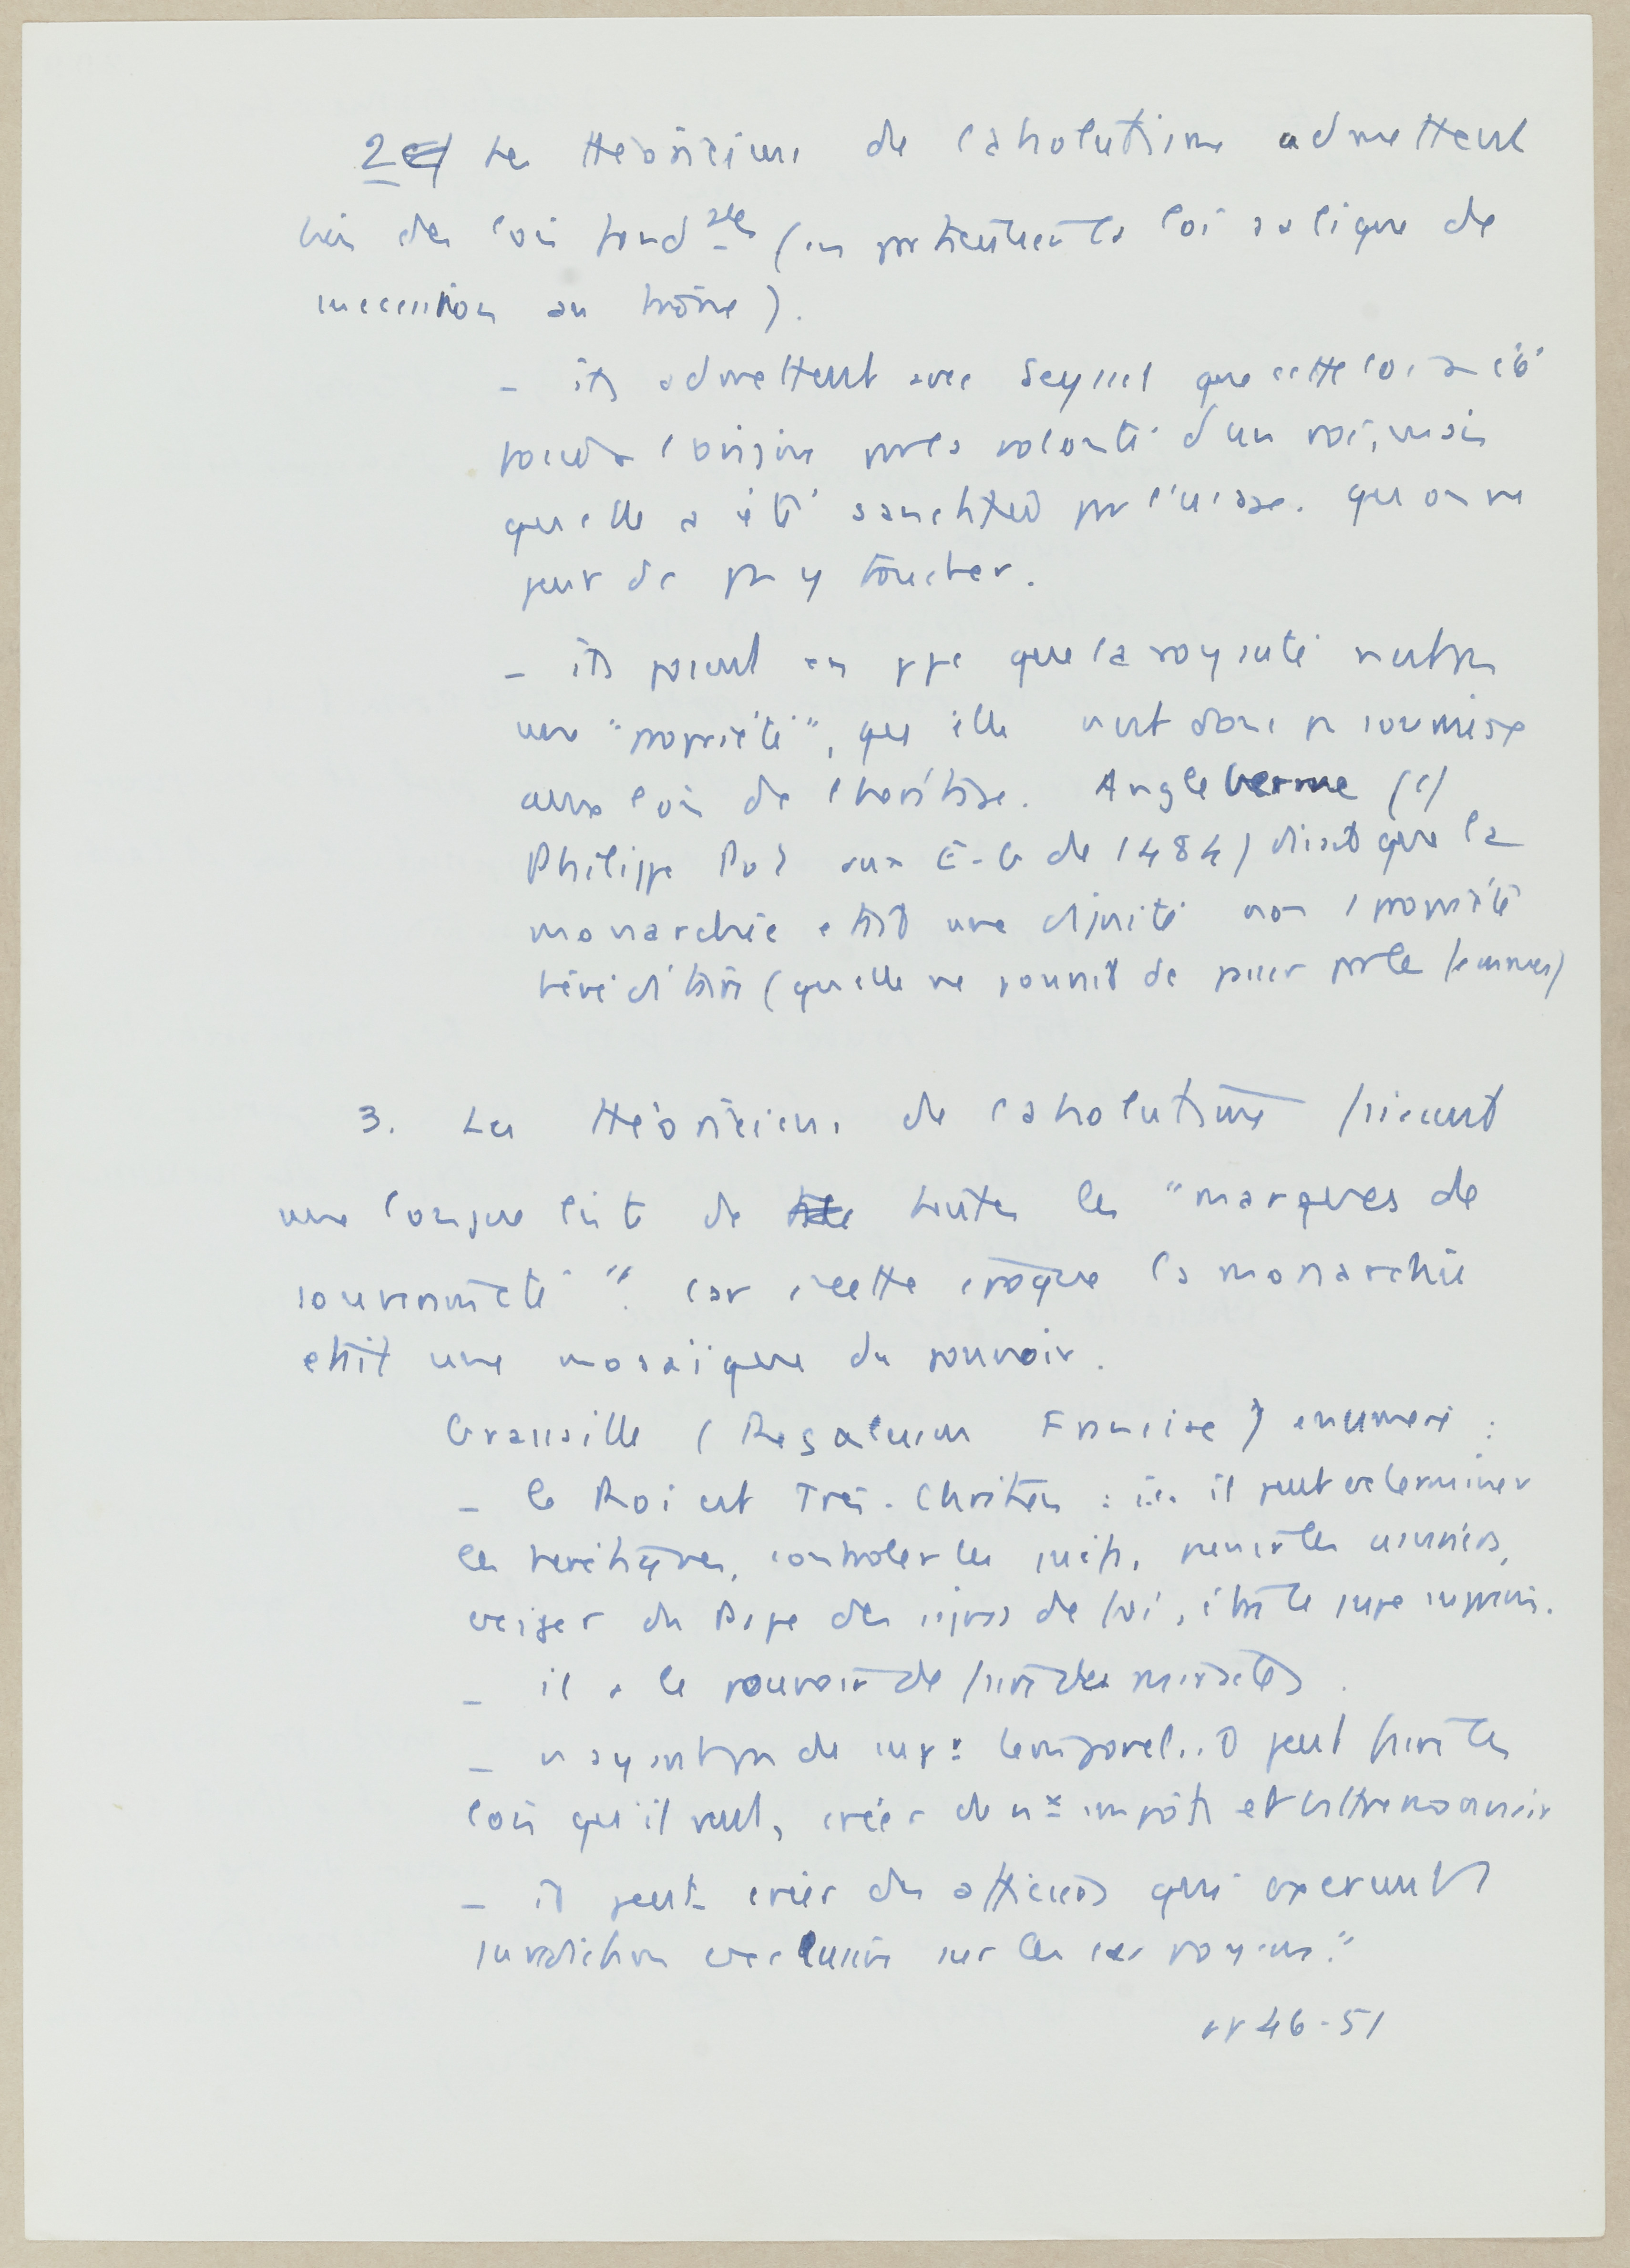 2 Les théoriciens de l'absolutisme admettent
bien des lois fond ales (en particulier la loi salique de
succession au trône).
- ils admettent avec Seyssel que cette loi a été
posée à l'origine par la volonté d'un roi, mais
qu'elle a été sanctifiée par l'usage. qu'on ne
peut dc pas y toucher.
- ils posent en ppe que la royauté n'est pas
une "propriété", qu'elle n'est donc pas soumise
aux lois de l'héritage. Angleberme (cf
Philippe Pot aux E-G de 1484) disait que la
monarchie était une dignité non 1 propriété
héréditaire (qu'elle ne pouvait dc passer par les femmes)
3. Les théoriciens de l'absolutisme fixent
une longue liste de toutes les "marques de
souveraineté". Car à cette époque la monarchie
était une mosaïque du pouvoir.
Grassaille (Regalium Franciae) enumère :
- le Roi est Très-Chrétien : i.e. il peut exterminer
les hérétiques, contrôler les juifs, punir les usuriers,
exiger du Pape des de foi, être le juge suprême.
- il a le pouvoir de faire des miracles.
- n'ayant pas de supr temporel.. il peut faire les
lois qu'il veut, créer de nx impôts et battre monnaie
- il peut créer des officiers qui exercent 1
juridiction exclusive sur les cas royaux."
pp 46-51